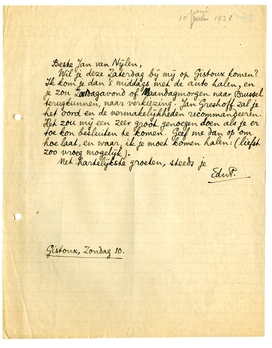 juni
10 juli 1928
Beste Jan van Nijlen,
Wil je deze Zaterdag bij mij op Gistoux komen?
Ik kom je dan 's middags met de auto halen, en
je zou Zondagavond of Maandagmorgen naar Brussel
terugkunnen, naar verkiezing. Jan Greshoff zal je
het oord en de vermakelijkheden recommandeeren.
Het zou mij een zeer groot genoegen doen als je er
toe kon besluiten te komen. Geef me dan op om
hoe laat, en waar, ik je moet komen halen. (liefst
zoo vroeg mogelijk).
Met hartelijkste groeten, steeds je
EduP.
Gistoux, Zondag 10.